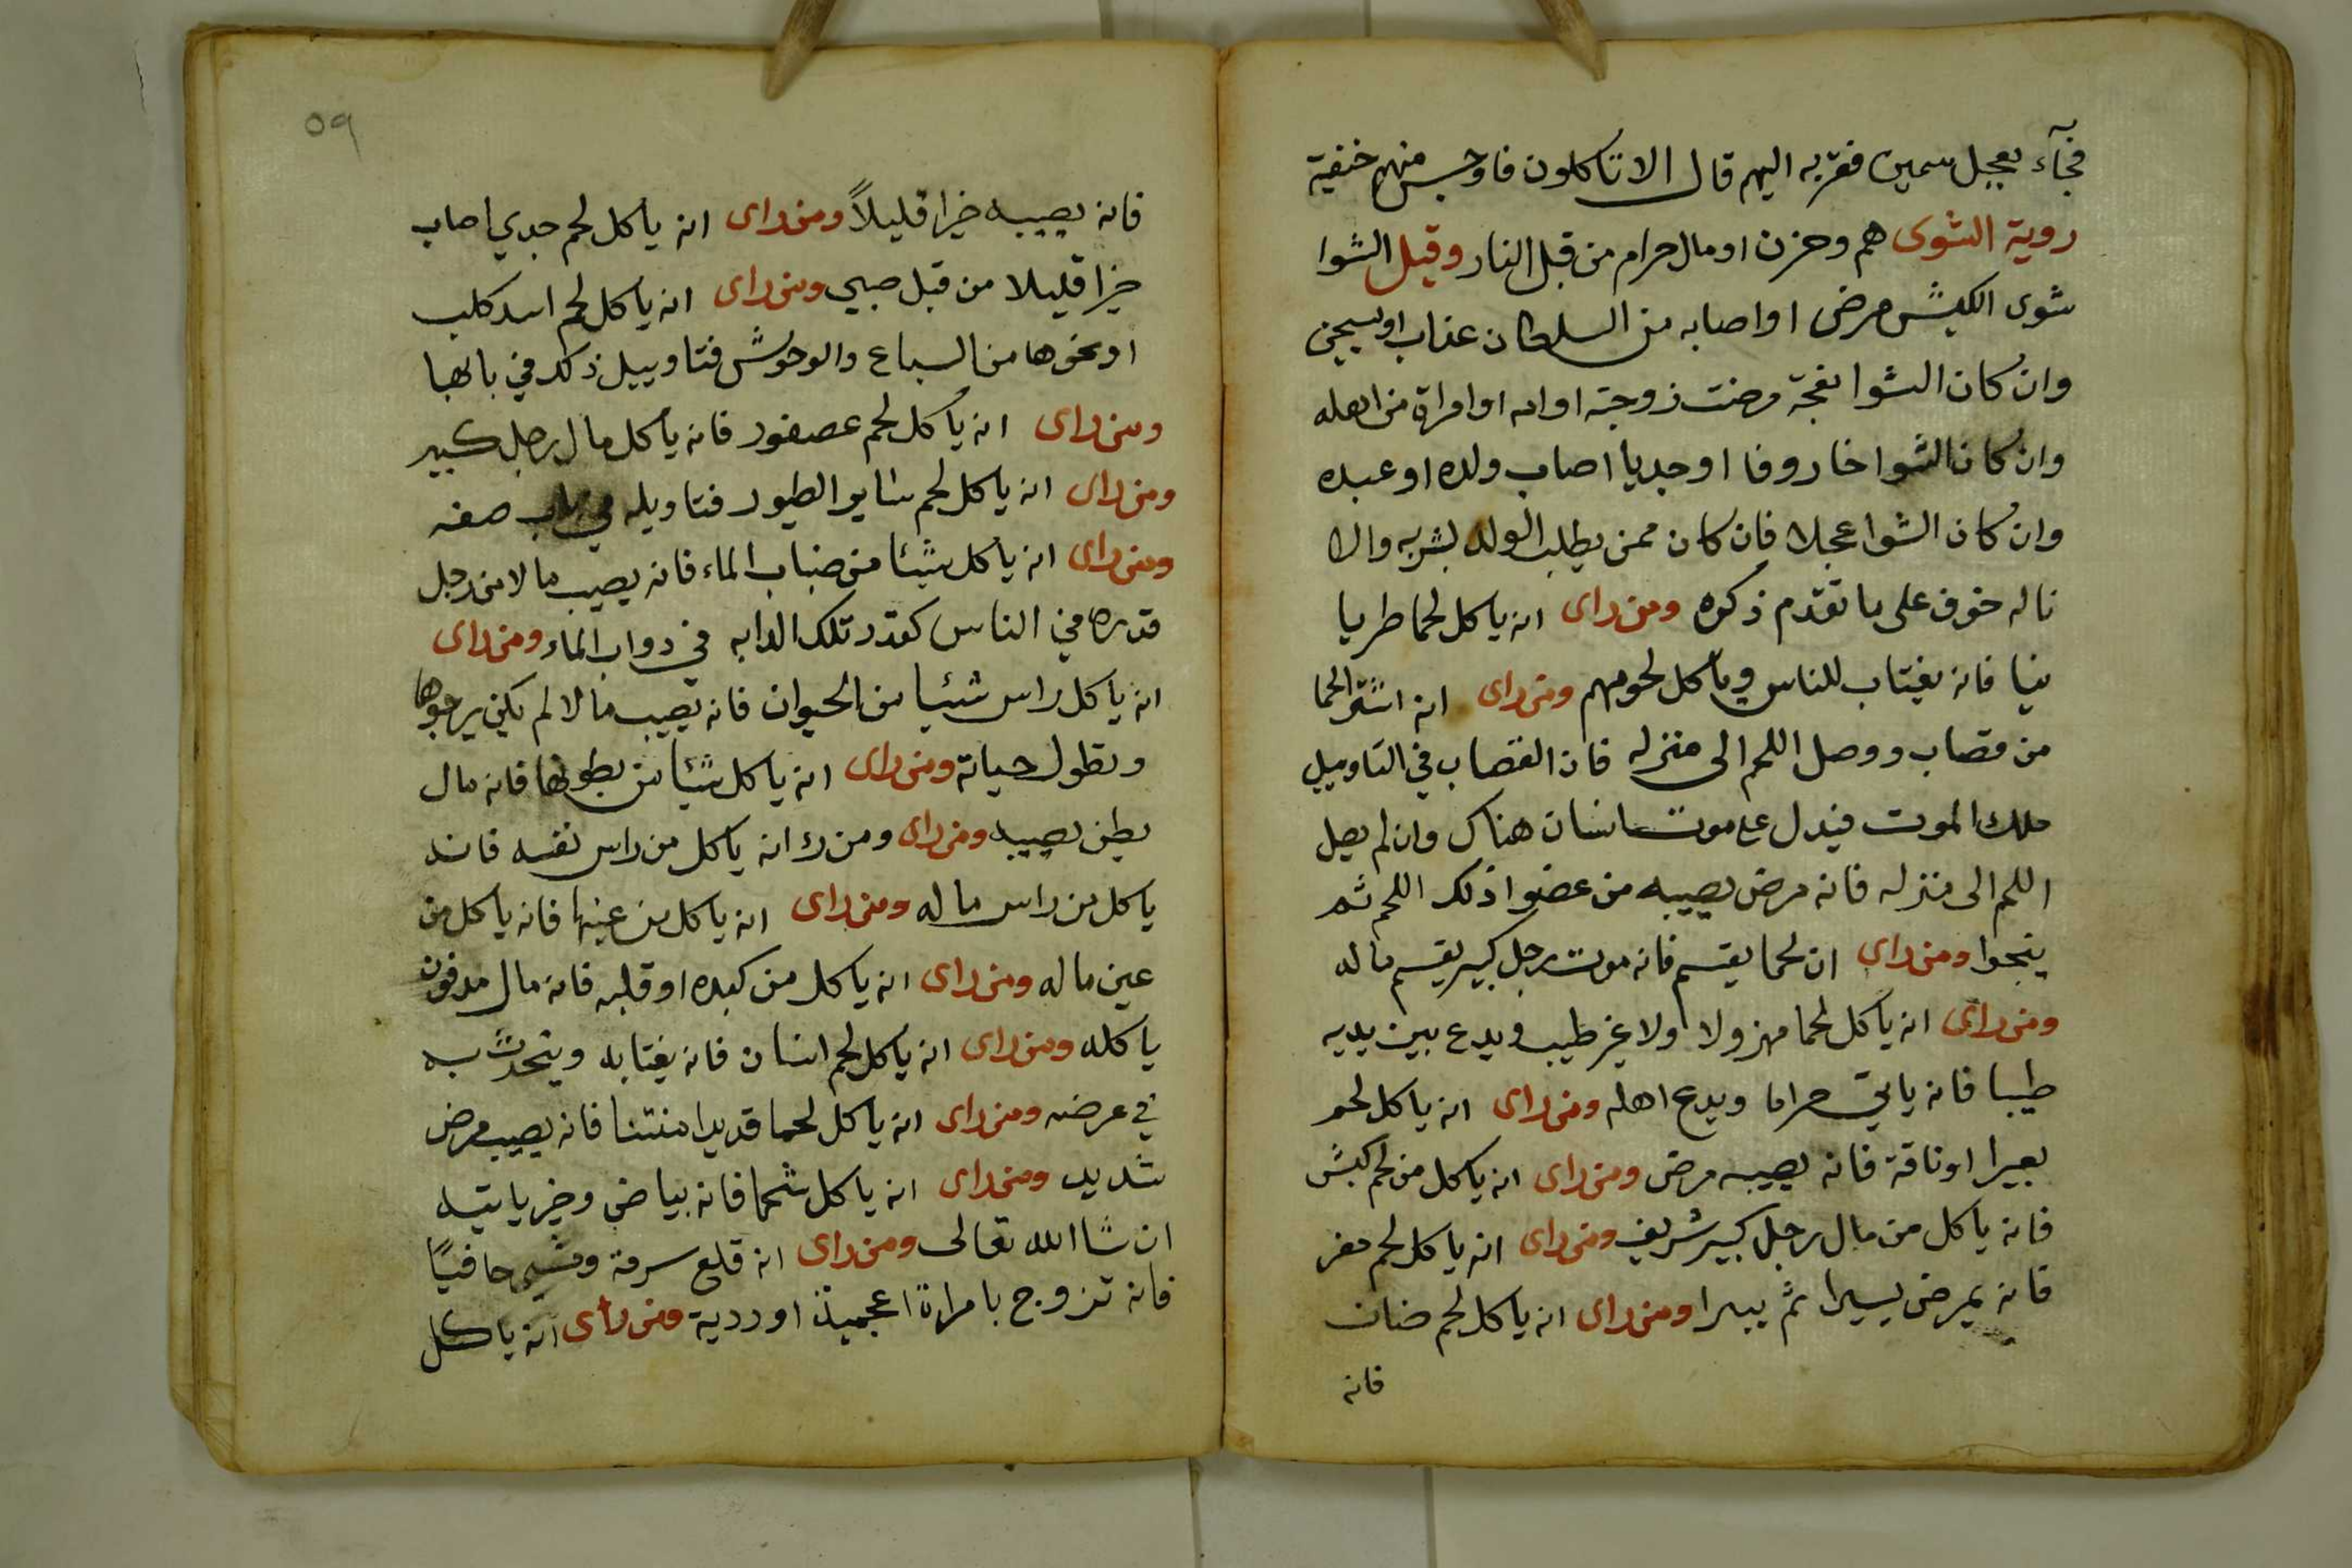 فجآء بعجل سمين فقربه اليهم قال الا تاكلون فاوجس منهم خيفة
روية الشوى هم وحزن او مال حرام من قبل النار وقيل الشوا
شوى الكبش مرض او اصابه من السلطان عذاب او يسجن
وان كان الشوا نعجة مرضت زوجته او امه او امراة من اهله
وان كان الشوا خاروفا او جديا اصاب ولده او عبده
وان كان الشوا عجلا فان كان ممن يطلب الولد بشر به والا
ناله خوف على ما تقدم ذكره ومن راى انه ياكل لحما طريا
نيا فانه يغتاب للناس وياكل لحومهم ومن راى انه اشترا لحما
من قصاب ووصل اللحم الى منزله فان القصاب في التاويل
ملك الموت فيدل على موت انسان هناك وان لم يصل
اللحم الى منزله فانه مرض يصيبه من عضوا ذلك اللحم ثم
ينجوا ومن راى ان لحما يقسم فانه موت رجل كبير يقسم ماله
ومن راى انه ياكل لحما مهزولا ولا غير طيب ويدع بين يديه
طيبا فانه ياتي حراما ويدع اهله ومن راى انه ياكل لحم
بعيرا او ناقة فانه يصيبه مرض ومن راى انه ياكل من لحم كبش
فانه ياكل من مال رجل كبير شريف ومن راى انه ياكل لحم معز
فانه يمرض يسيرا ثم يبرا ومن راى انه ياكل لحم ضان
فانه
٥٩
فانه يصيبه خيرا قليلاً ومن راى انه ياكل لحم جدي اصاب
خيرا قليلا من قبل صبي ومن راى انه ياكل لحم اسد كلب
او نحوها من السباع والوحوش فتاويل ذلك في بابها
ومن راى انه ياكل لحم عصفور فانه ياكل مال رجل كبير
ومن راى انه ياكل لحم ساير الطيور فتاويله في باب صفه
ومن راى انه ياكل شيئا من ضباب الماء فانه يصيب مالا من رجل
قدره في الناس كقدر تلك الدابه في دواب الماء ومن راى
انه ياكل راس شئيا من الحيوان فانه يصيب مالا لم يكن يرجوها
وتطول حياته ومن راى انه ياكل شيئا من بطونها فانه مال
بطن يصيبه ومن راى ومن را انه ياكل من راس نفسه فانه
ياكل من راس ماله ومن راى انه ياكل من عينها فانه ياكل من
عين ماله ومن راى انه ياكل من كبده او قلبه فانه مال مدفون
ياكله ومن راى انه ياكل لحم انسان فانه يغتابه ويتحدث به
في عرضه ومن راى انه ياكل لحما قديدا منتنا فانه يصيب مرض
شديد ومن راى انه ياكل شحما فانه بياض وخير ياتيه
ان شا الله تعالى ومن راى انه قلع سرمة ومشي حافيًا
فانه تزوج بامراة اعجمية او ردية ومن راى انه ياكل